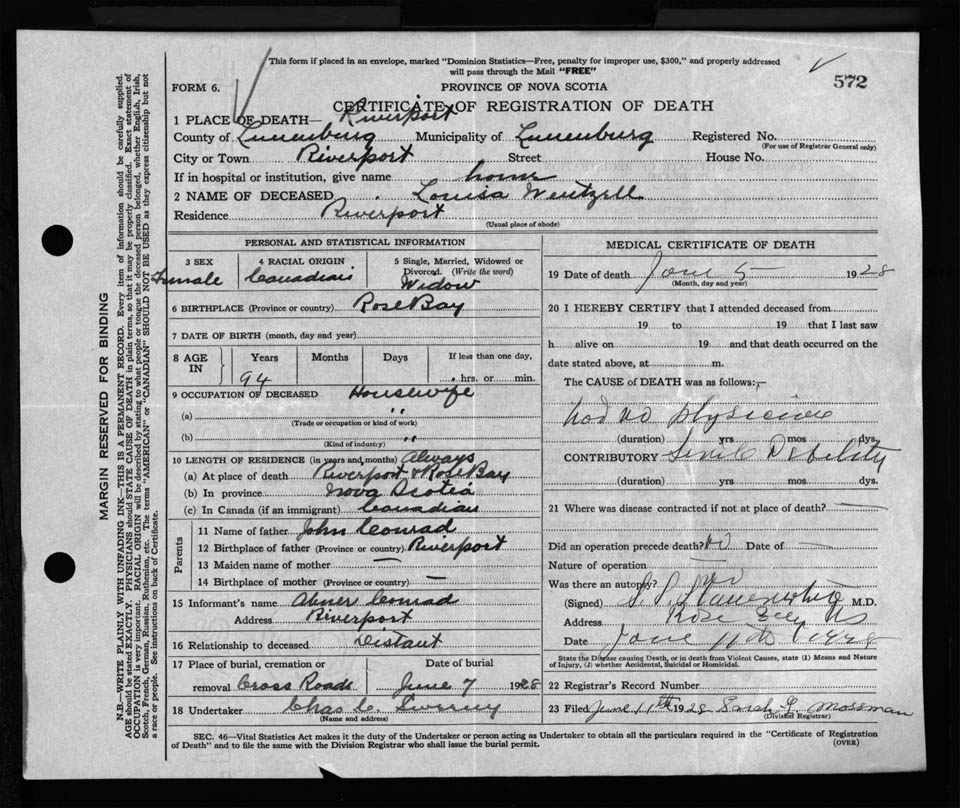 This form if placed in an envelope, marked "Dominion Statistics—Free, penalty for improper use, $300," and properly addressed
will pass through the Mail "FREE"
572
FORM 6.
PROVINCE OF NOVA SCOTIA
CERTIFICATE OF REGISTRATION OF DEATH
1 PLACE OF DEATH— Riverport
County of Lunenburg Municipality of Lunenburg Registered No.
(For use of Registrar General only)
City or Town Riverport Street House No.
If in hospital or institution, give name home
2 NAME OF DECEASED Louisa Wentzell
Residence Riverport
(Usual place of abode)
PERSONAL AND STATISTICAL INFORMATION
3 SEX 4 RACIAL ORIGIN 5 Single, Married, Widowed or
Divorced. (Write the word)
Female Canadian Widow
6 BIRTHPLACE (Province or country) Rose Bay
7 DATE OF BIRTH (month, day and year)
8 AGE IN Years Months Days If less than one day,
94 hrs. or min.
9 OCCUPATION OF DECEASED Housewife
(a) "
(Trade or occupation or kind of work)
(b) "
(Kind of industry)
10 LENGTH OF RESIDENCE (in years and months) Always
(a) At place of death Riverport & Rose Bay
(b) In province Nova Scotia
(c) In Canada (if an immigrant) Canadian
Parents
11 Name of father John Conrad
12 Birthplace of father (Province or country) Riverport
13 Maiden name of mother —
14 Birthplace of mother (Province or country) —
15 Informant's name Abner Conrad
Address Riverport
16 Relationship to deceased Distant
17 Place of burial, cremation or Date of burial
removal Cross Roads June 7 1928
18 Undertaker Chas C.
(Name and address)
MEDICAL CERTIFICATE OF DEATH
19 Date of death June 5 — 1928
(Month, day and year)
20 I HEREBY CERTIFY that I attended deceased from
19 to 19 that I last saw
h alive on 19 and that death occurred on the
date stated above, at m.
The CAUSE of DEATH was as follows:—
had no physician
(duration) yrs mos dys.
CONTRIBUTORY Senile Debility
(duration) yrs. mos. dys.
21 Where was disease contracted if not at place of death? —
Did an operation precede death? No Date of —
Nature of operation —
Was there an autopsy? no
(Signed) M.D.
Address Rose Bay NS
Date June 11th 1928
State the Disease causing Death, or in death from Violent Causes, state (1) Means and Nature
of Injury, (2) whether Accidental, Suicidal or Homicidal.
22 Registrar's Record Number
23 Filed June 11th 1928 Sarah Mossman
(Division Registrar)
SEC. 46—Vital Statistics Act makes it the duty of the Undertaker or person acting as Undertaker to obtain all the particulars required in the "Certificate of Registration
of Death" and to file the same with the Division Registrar who shall issue the burial permit.
(OVER)
MARGIN RESERVED FOR BINDING
N.B.—WRITE PLAINLY WITH UNFADING INK—THIS IS A PERMANENT RECORD. Every item of information should be carefully supplied.
AGE should be stated EXACTLY. PHYSICIANS should STATE CAUSE OF DEATH in plain terms, so that it may be properly classified. Exact statement of
OCCUPATION is very important. RACIAL ORIGIN will be described by stating to what people or tongue the deceased person belonged, whether English, Irish,
Scotch, French, German, Russian, Ruthenian, etc. The terms "AMERICAN" or "CANADIAN" SHOULD NOT BE USED as they express citizenship but not
a race or people. See instructions on back of Certificate.